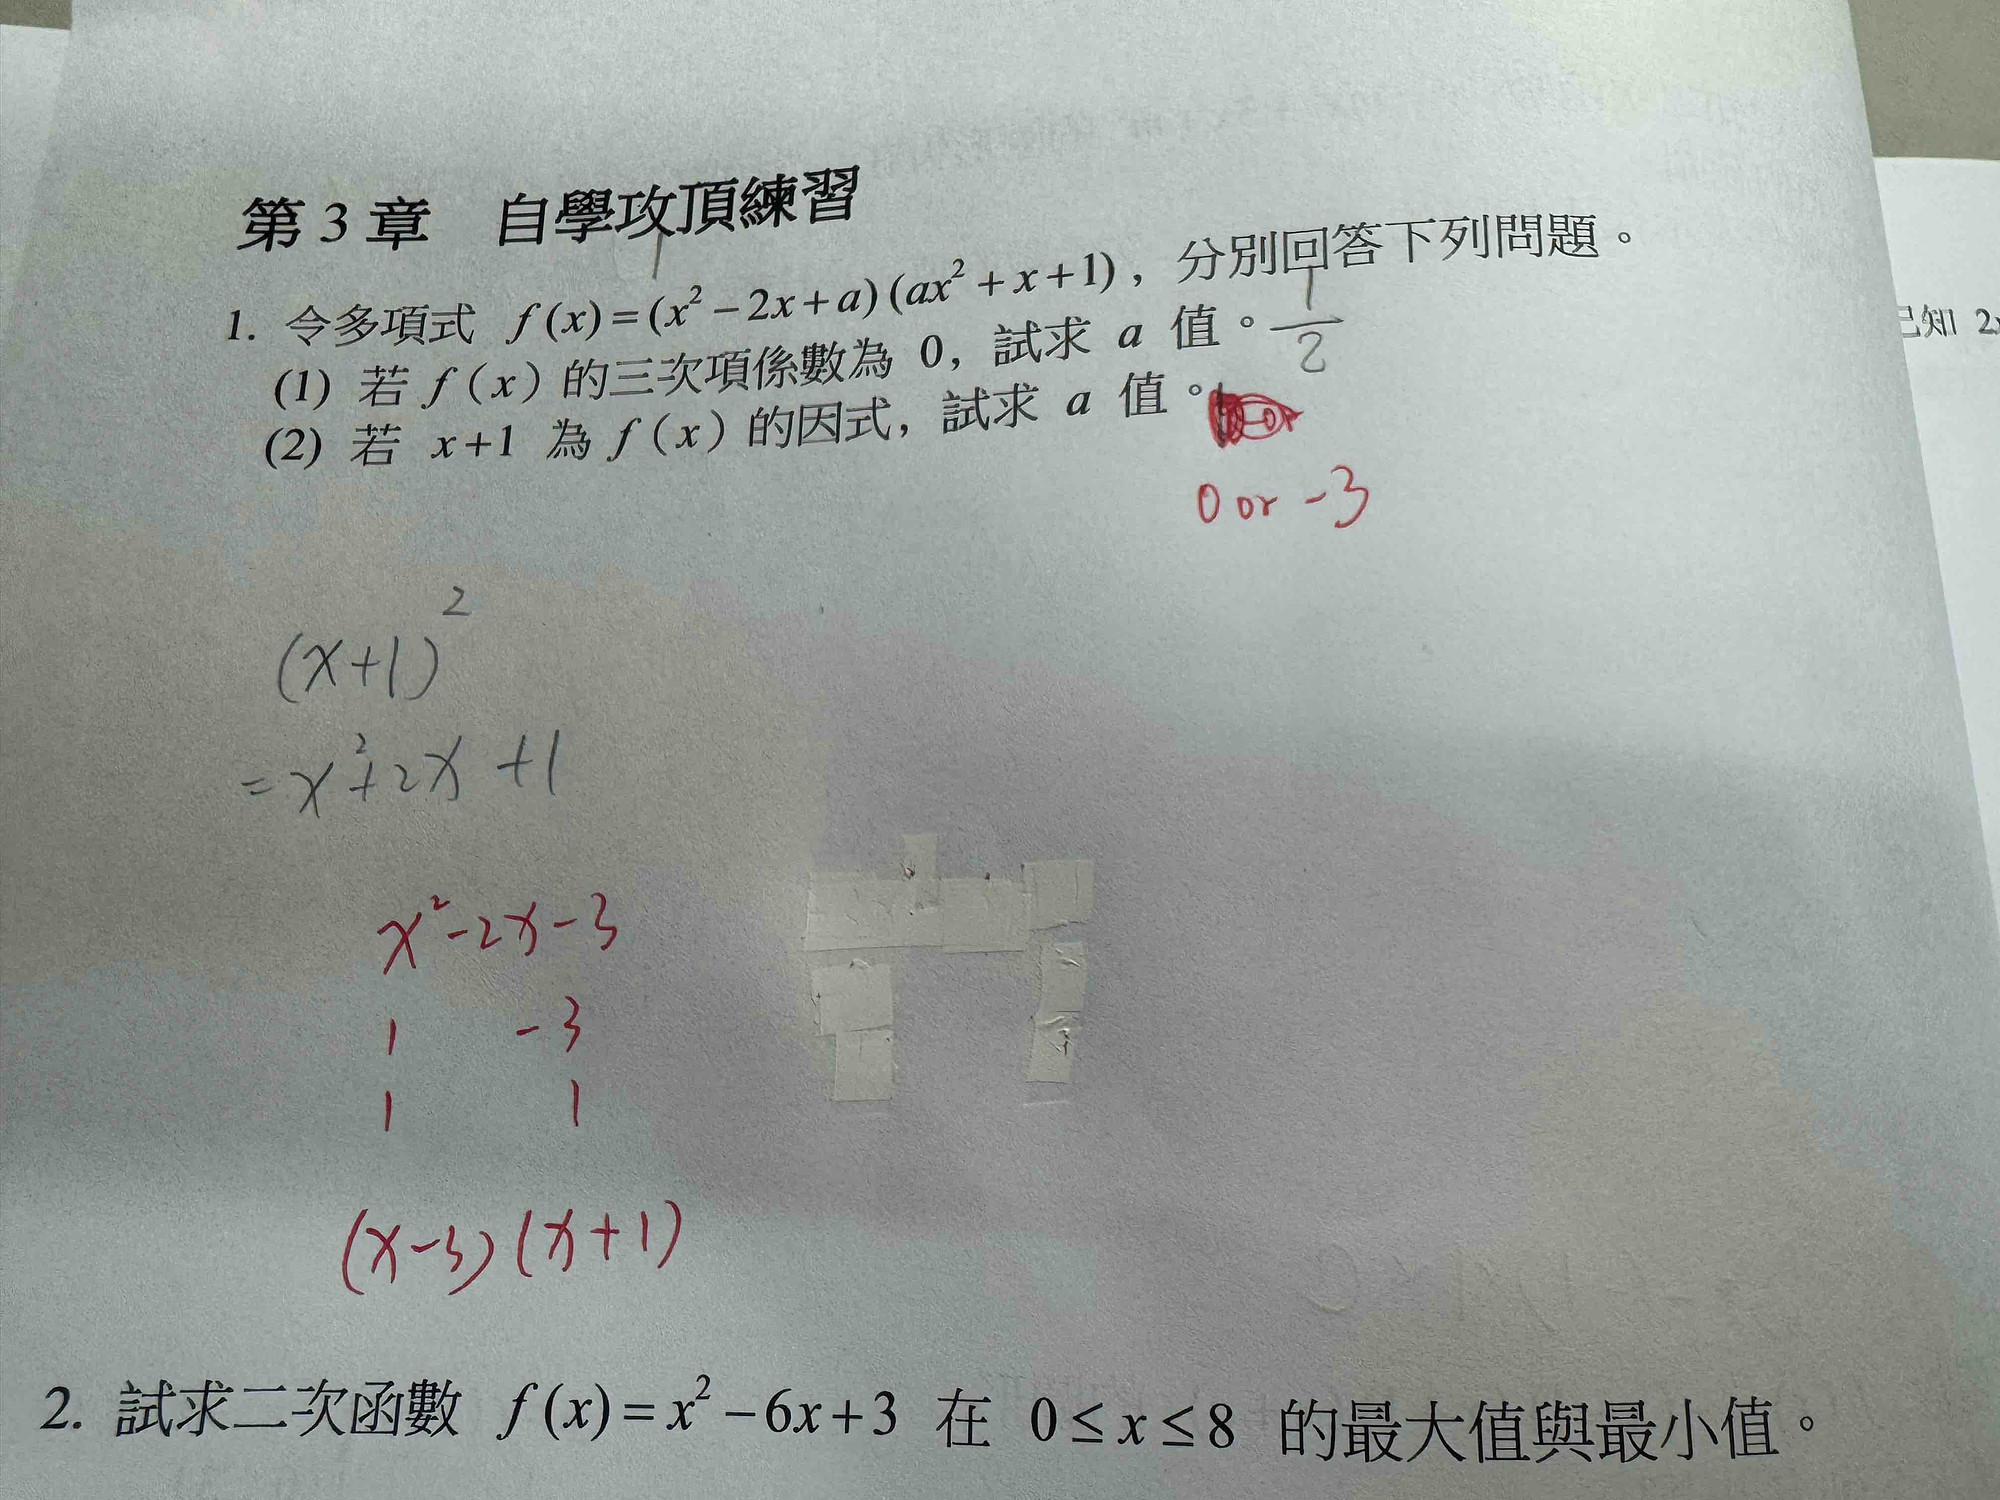 第 3 章 自學攻頂練習
1. 令多項式 f(x)=(x²-2x+a)(ax²+x+1), 分別回答下列問題。
(1) 若 f(x) 的三次項係數為 0, 試求 a 值。 1/2
(2) 若 x+1 為 f(x) 的因式, 試求 a 值。
0 or -3
(x+1)²
=x²+2x+1
x²-2x-3
1 -3
1 1
(x-3)(x+1)
2. 試求二次函數 f(x)=x²-6x+3 在 0≤x≤8 的最大值與最小值。
已知 2